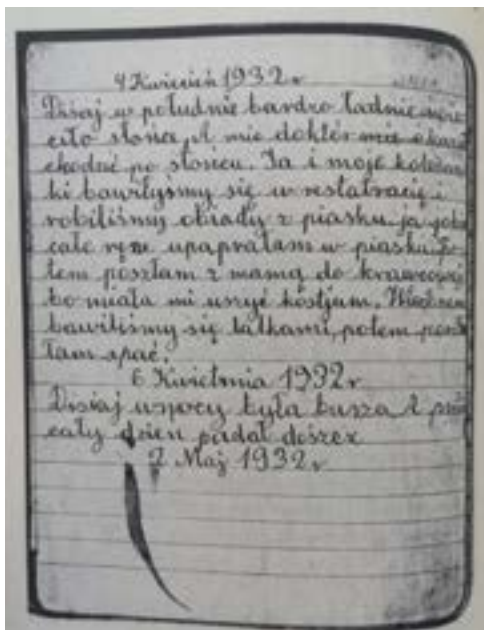 4 Kwiecień 1932 r
Dzisaj w południe bardzo ładnie świe
ciło słońce. A mie doktór
chodzić po słońcu. Ja i moje koleżan
ki bawiłyśmy się w restałracię i
robiliśmy obiady z piasku ja
całe ręce upaprałam w piasku. Po
tem poszłam z mamą do krawcowej
bo miała mi uszyć kóstjum. Wieczorem
bawiliśmy się lalkami, potem posz
łam spać.
6 Kwietnia 1932 r
Disiaj wnocy była busza i
cały dzień padał deszcz
2 Maj 1932 r